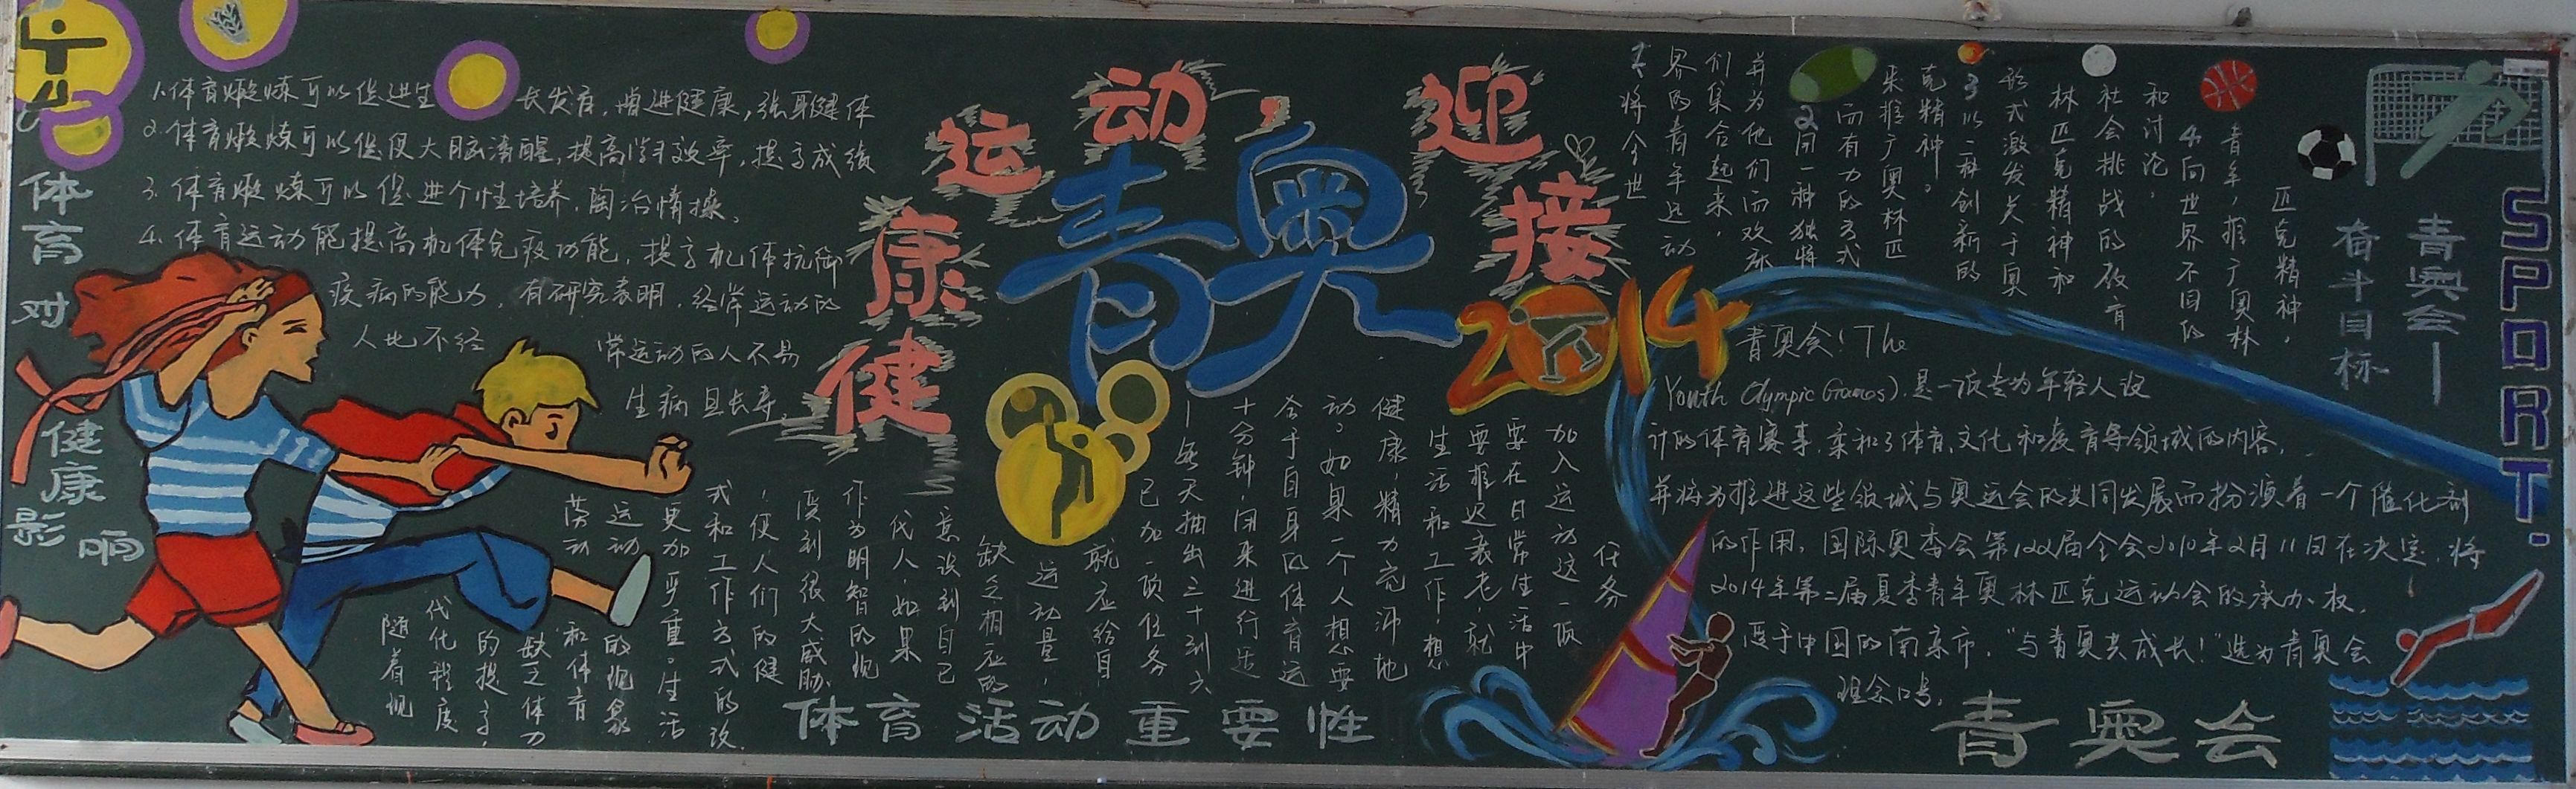 体育对健康影响
1.体育煅炼可以促进生长发育,增进健康,强身健体
2.体育煅炼可以促使大脑清醒,提高学习效率,提高成绩
3.体育煅炼可以促进个性培养,陶冶情操。
4.体育运动能提高机体免疫功能,提高机体抗御
疾病的能力,有研究表明,经常运动的
人比不经常运动的人不易
生病且长寿。
健康运动,迎接
青奥
2014
体育活动重要性
随着现
代化程度
的提高,
缺乏体力
和体育
的现象
更加严重。生活
式和工作方式的改
,使人们的健
受到很大威胁
作为明智的现
代人,如果
意识到自己
缺乏相应的
运动量,
就应给自
己加一项任务
—每天抽出三十到六
十分钟,用来进行适
合于自身的体育运
动。如果一个人想要
健康,精力充沛地
生活和工作,想
要推迟衰老,就
要在日常生活中
加入运动这一项
任务
青奥会—
奋斗目标
1.将全世
界的青年运动
们集合起来,
并为他们而欢庆
2用一种独特
而有力的方式
来推广奥林匹
克精神。
3以一种创新的
形式激发关于奥
林匹克精神和
社会挑战的教育
和讨论,
4.向世界不同的
青年,推广奥林
匹克精神。
SPORT.
青奥会!The
Youth Olympic Games).是一项专为年轻人设
计的体育赛事,柔和了体育、文化和教育等领域的内容,
并将为推进这些领域与奥运会的共同发展而扮演着一个催化剂
的作用,国际奥委会第122届全会2010年2月11日在决定,将
2014年第二届夏季青年奥林匹克运动会的承办权,
于中国的南京市,“与青奥共成长!”选为青奥会
口号,
青奥会